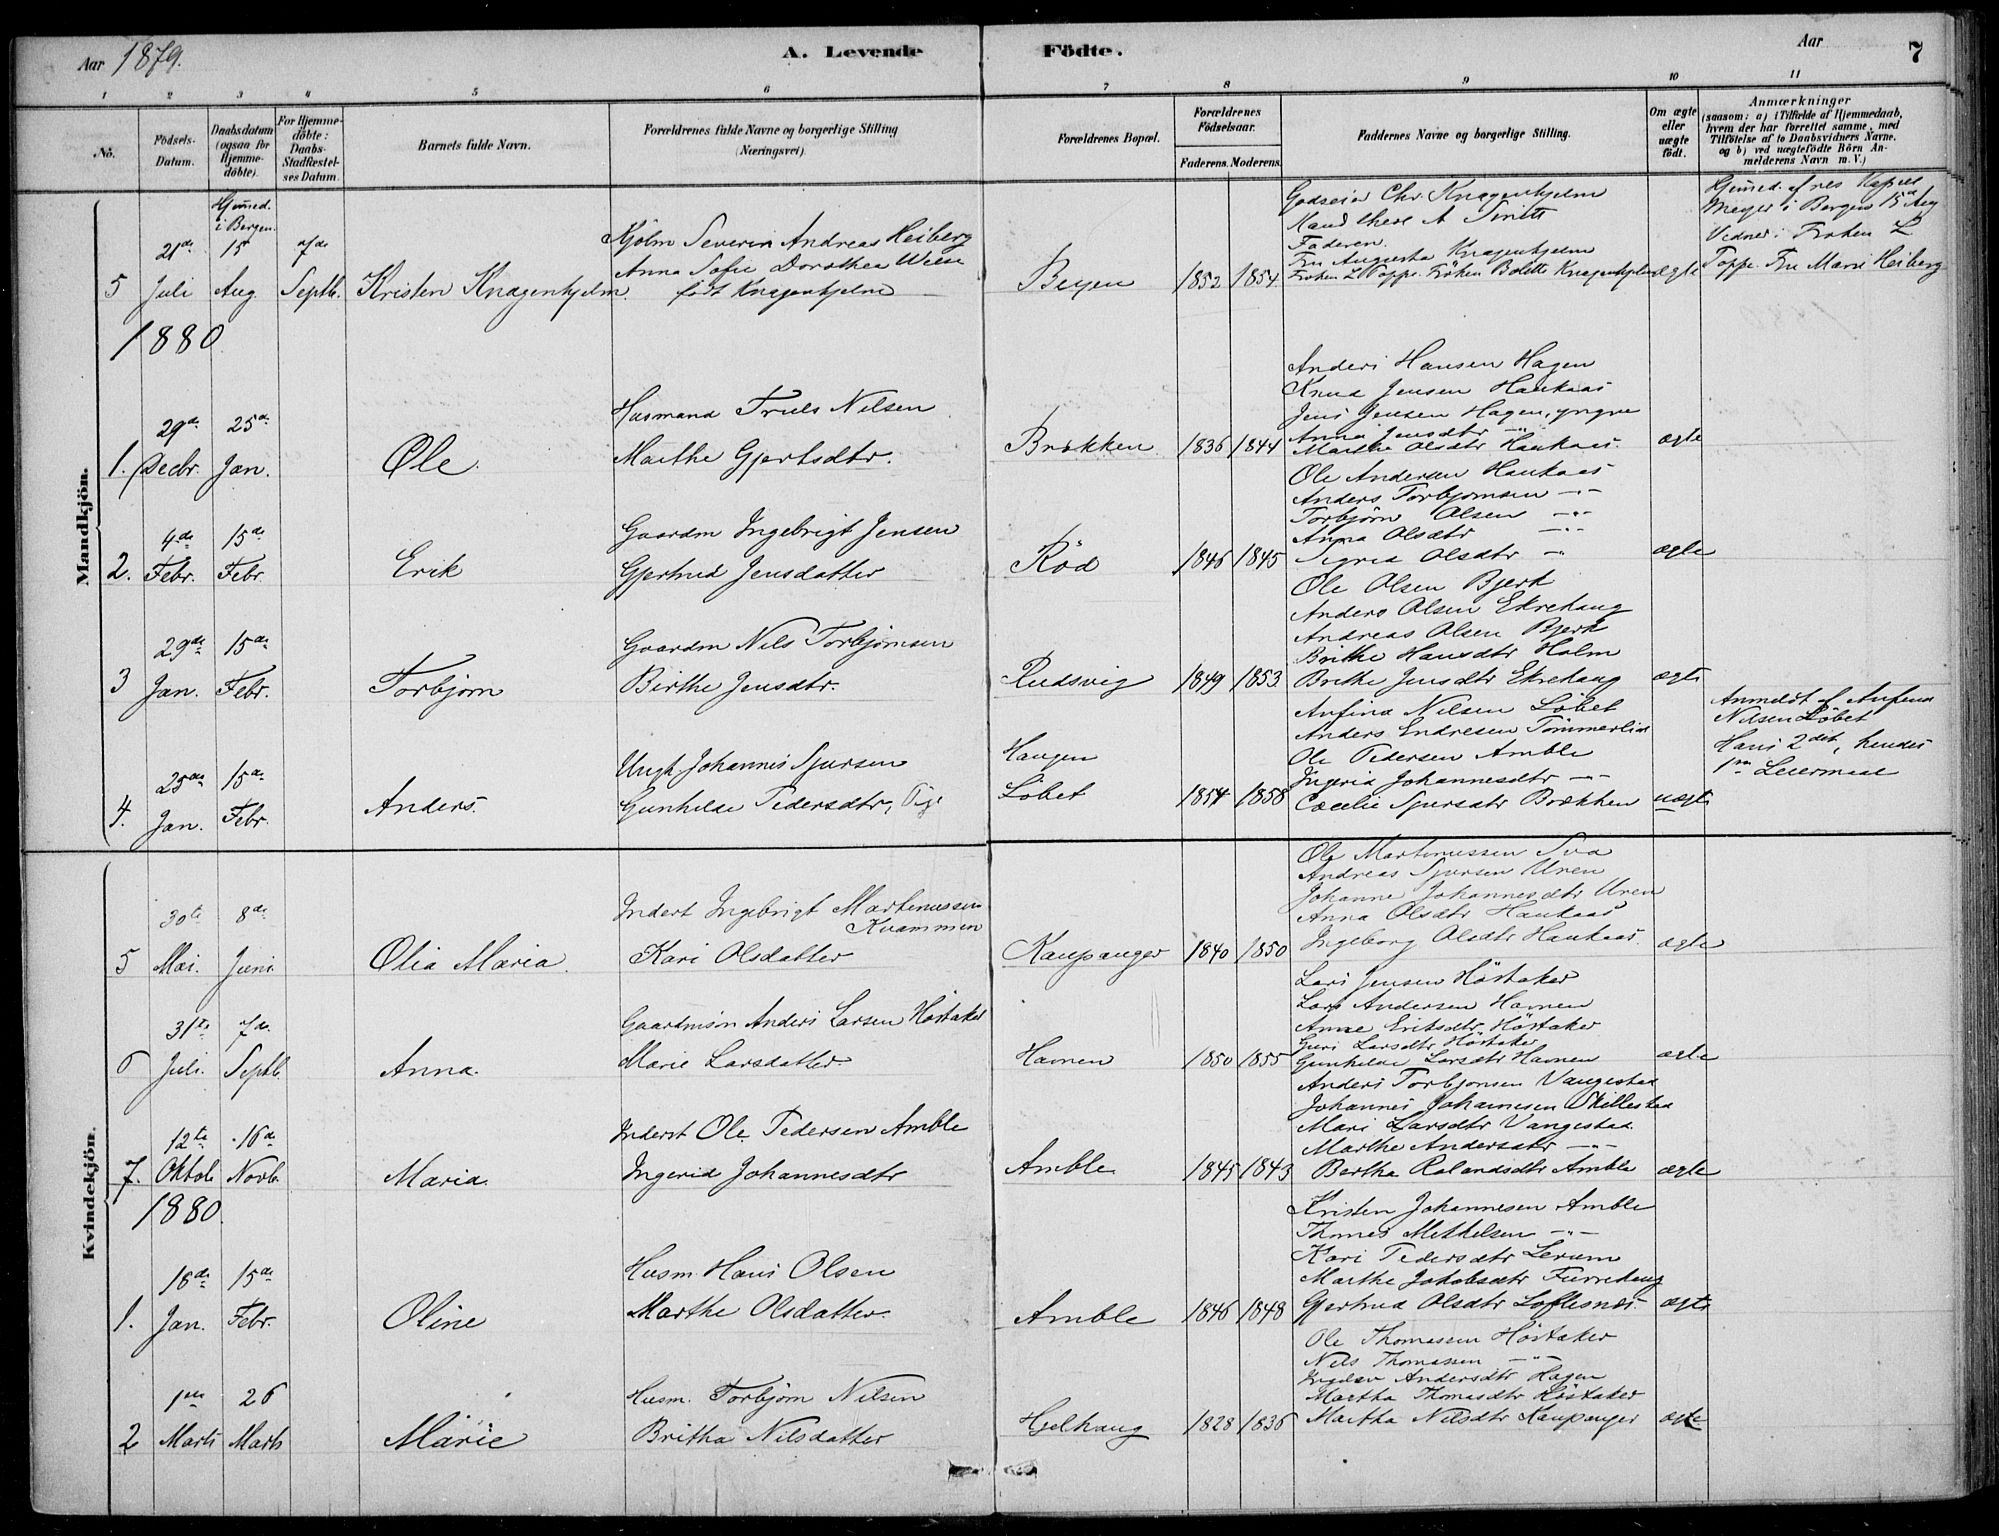 Aar 1879.
A. Levende Födte.
Aar
7
1 2 3 4 5 6 7 8 9 10 11
No.
Födsels-Datum.
Daabsdatum (ogsaa for Hjemmedöbte).
For Hjemmedöbte: Daabs-Stadfæstelses Datum.
Barnets fulde Navn.
Forældrenes fulde Navne og borgerlige Stilling (Næringsvei).
Forældrenes Bopæl.
Forældrenes Födselsaar.
Faderens. Moderens.
Faddernes Navne og borgerlige Stilling.
Om ægte eller uægte födt.
Anmærkninger
(saasom: a) i Tilfælde af Hjemmedaab, hvem der har forrettet samme, med Tilföielse af to Daabsvidners Navne. og b) ved uægtefödte Börn Anmelderens Navn m. V.)
Mandkjön.
Hjemmed. i Bergen
5 21de Juli 15 Aug. 7de Septb. Kristen Knagenhjelm.
Kjøbm Severin Andreas Heiberg
Anna Sofie Dorothea Weise
født Knagenhjelm
Bergen 1852 1854
Godseier Chr. Knagenhjelm
Faderen.
Fru Augusta Knagenhjelm
Frøken L Poppe. Frøken Bolette Knagenhjelm ægte
Hjemmed. af res Kapel
Meyer i Bergen 15de Aug
Vidner: Frøken L
Poppe. Fru Marie Heiberg
1880
1. 29de Decbr. 25de Jan. Ole.
Husmand Truls Nilsen
Marthe Gjertsdtr.
Brækken 1836 1844
Anders Hansen Hagen
Knud Jensen Haukaas
Jens Jensen Hagen, yngre
Anna Jensdtr —"—
Marthe Olsdtr Haukaas. ægte
2. 4de Febr. 15de Febr. Erik
Gaardm Ingebrigt Jensen
Gjertrud Jensdatter
Röd 1846 1845
Ole Andersen Haukaas
Anders Torbjørnsen —"—
Torbjörn Olsen —"—
Anna Olsdtr —"—
Sigrid Olsdtr —"— ægte
3 29de Jan. 15de Febr. Torbjørn
Gaardm Nils Torbjørnsen
Birthe Jensdtr.
Rudsvig 1849 1853
Ole Olsen Bjerk
Anders Olsen Ekrehaug
Andreas Olsen Bjerk
Brithe Hansdtr Holm
Brithe Jensdtr Ekrehaug ægte
4. 25de Jan. 15de Febr. Anders.
Ungk. Johannes Sjursen
Gunhilde Pedersdtr, Pige
Haugen
Löbet 1854 1858
Anfind Nilsen Löbet
Anders Endresen Tömmerlien
Ole Pedersen Amble
Ingerid Johannesdtr —"—
Cæcelie Sjursdtr Brækken uægte
Anmeldt af Anfind
Nilsen Löbet
Hans 2det, hendes
1ste Leiermaal
Kvindekjön.
5 30te Mai. 8de Juni Olia Maria.
Inderst Ingebrigt Martinussen
Kvammen
Kari Olsdatter
Kaupanger 1840 1850
Ole Martinussen Sva
Andreas Sjursen Uren
Johanne Johannesdtr Uren
Anna Olsdtr Haukaas
Ingeborg Olsdtr Haukaas. ægte
6 31te Juli. 7de Septb. Anna.
Gaardmøn Anders Larsen Höstaker
Marie Larsdatter.
Havnen 1850 1855
Lars Jensen Höstaker
Lars Andersen Havnen
Anne Eriksdtr Höstaker
Guri Larsdtr Höstaker
Gunhilde Larsdtr Havnen ægte
7. 12te Oktob. 16de Novb. Maria.
Inderst Ole Pedersen Amble
Ingerid Johannesdtr
Amble 1845 1843
Anders Torbjørnsen Vangestad
Johannes Johannesen Skillestad
Mari Larsdtr Vangestad
Marthe Andersdtr —"—
Bertha Rolandsdtr Amble ægte
1880.
1. 18de Jan. 15de Febr. Oline
Husm. Hans Olsen
Marthe Olsdatter.
Amble 1846 1848
Kristen Johannesen Amble
Thomas Methelsen —"—
Kari Pedersdtr Lerum
Marthe Jakobsdtr Furrehaug
Gjertrud Olsdtr Loftesnæs. ægte
2 1ste Marts 26 Marts Marie
Husm. Torbjørn Nilsen
Britha Nilsdatter
Hjelhaug 1828 1836
Ole Thomassen Höstaker
Nils Thomassen —"—
Andersdtr Hagen
Martha Thomasdtr Höstaker
Martha Nilsdtr Kaupanger ægte